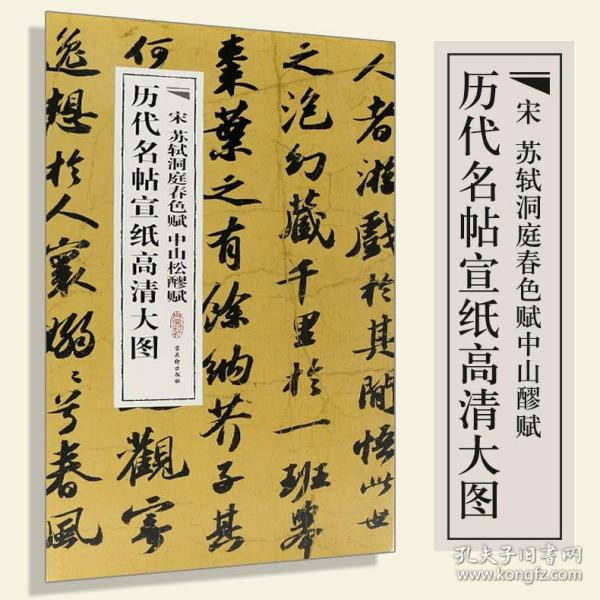 人者游戲於其間悟此世
之泡幻藏千里於一班舉
棗葉之有餘納芥子其
何
觀寄
逸想於人寰嫋〻兮春風
宋 苏轼洞庭春色赋 中山松醪赋
历代名帖宣纸高清大图
宋 苏轼洞庭春色赋中山醪赋
历代名帖宣纸高清大图
孔夫子旧书网
www.kongfz.com